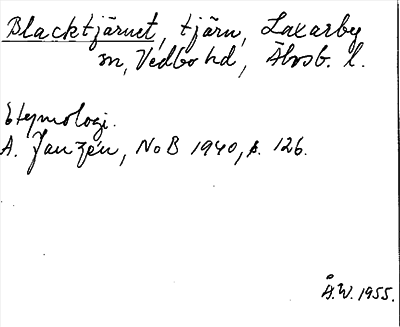 Blacktjärnet, tjärn, Laxarby
sn, Vedbo hd, Älvsb. l.
Etymologi.
A. Janzén, NoB 1940, s. 126.
Å.W. 1955.